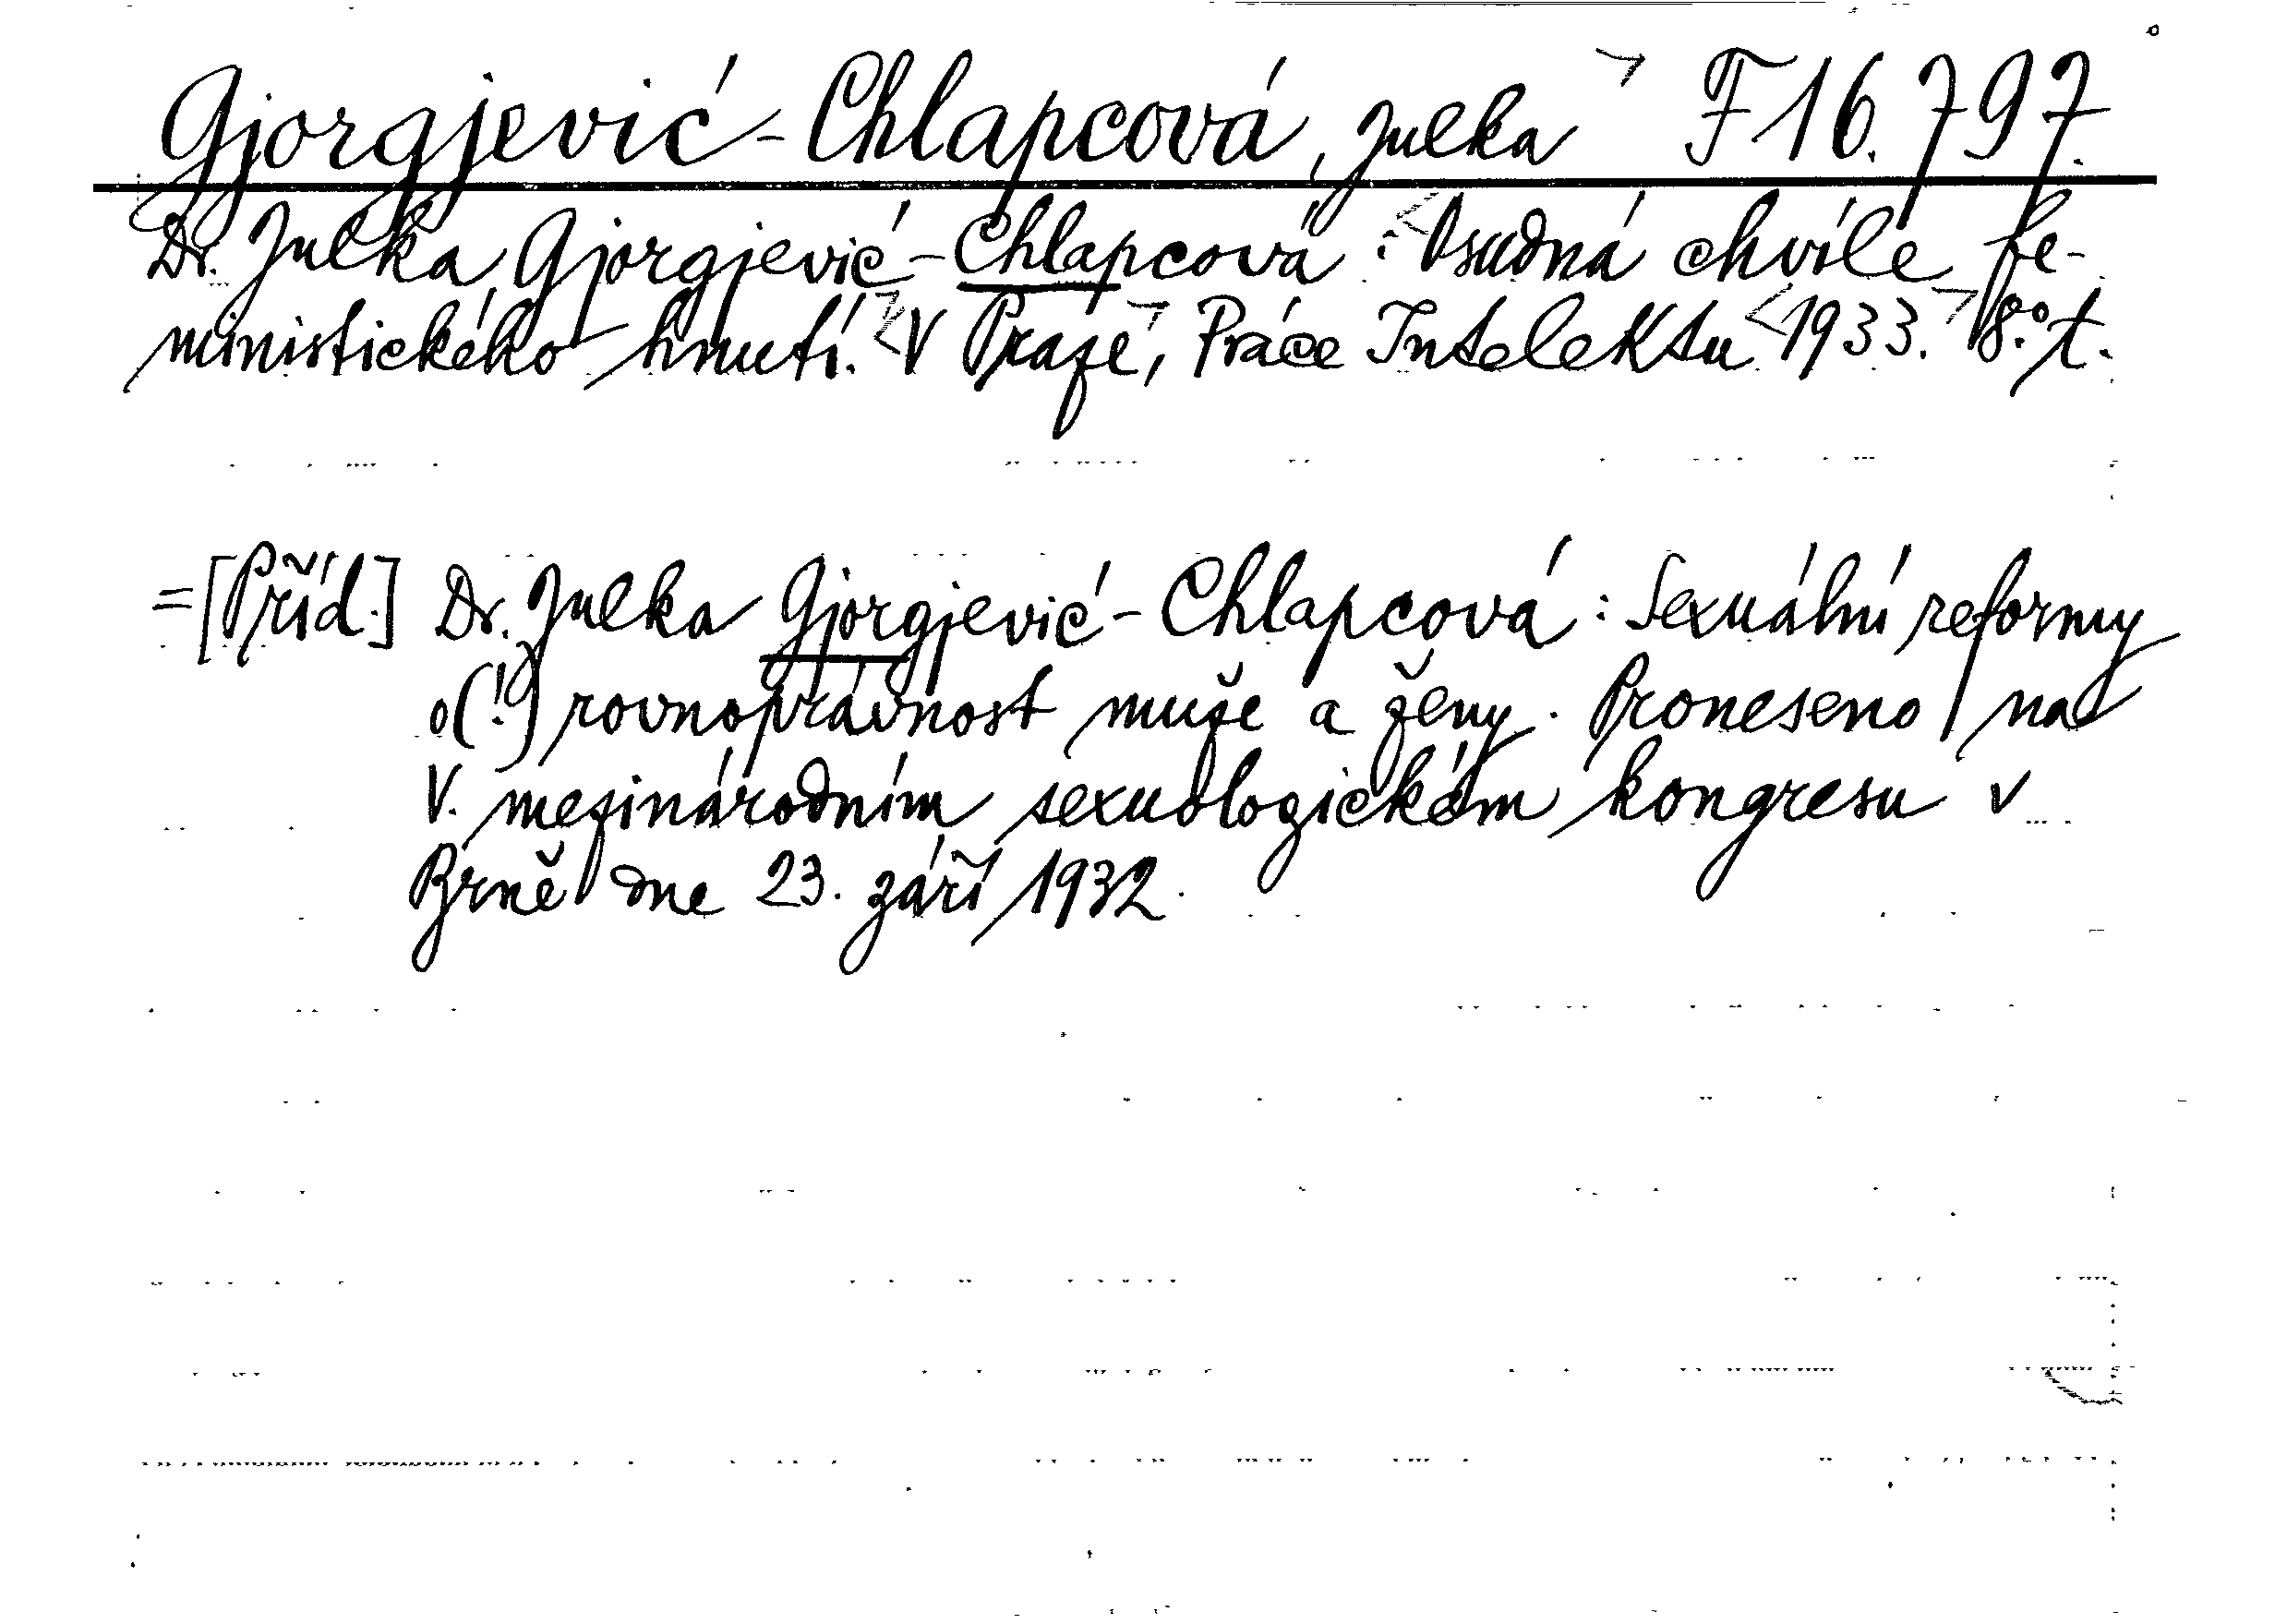 Gjorgjević-Chlapcová, Julka F 16.797.
Dr. Julka Gjorgjević-Chlapcová: Osudná chvíle fe-
ministického hnutí. V Praze, Práce Intelektu 1933. 8.° t.
=[Příd.] Dr. Julka Gjorgjević-Chlapcová: Sexuální reformy
o(!) rovnoprávnost muže a ženy. Proneseno na
V. mezinárodním sexuologickém kongresu v
Brně dne 23. září 1932.